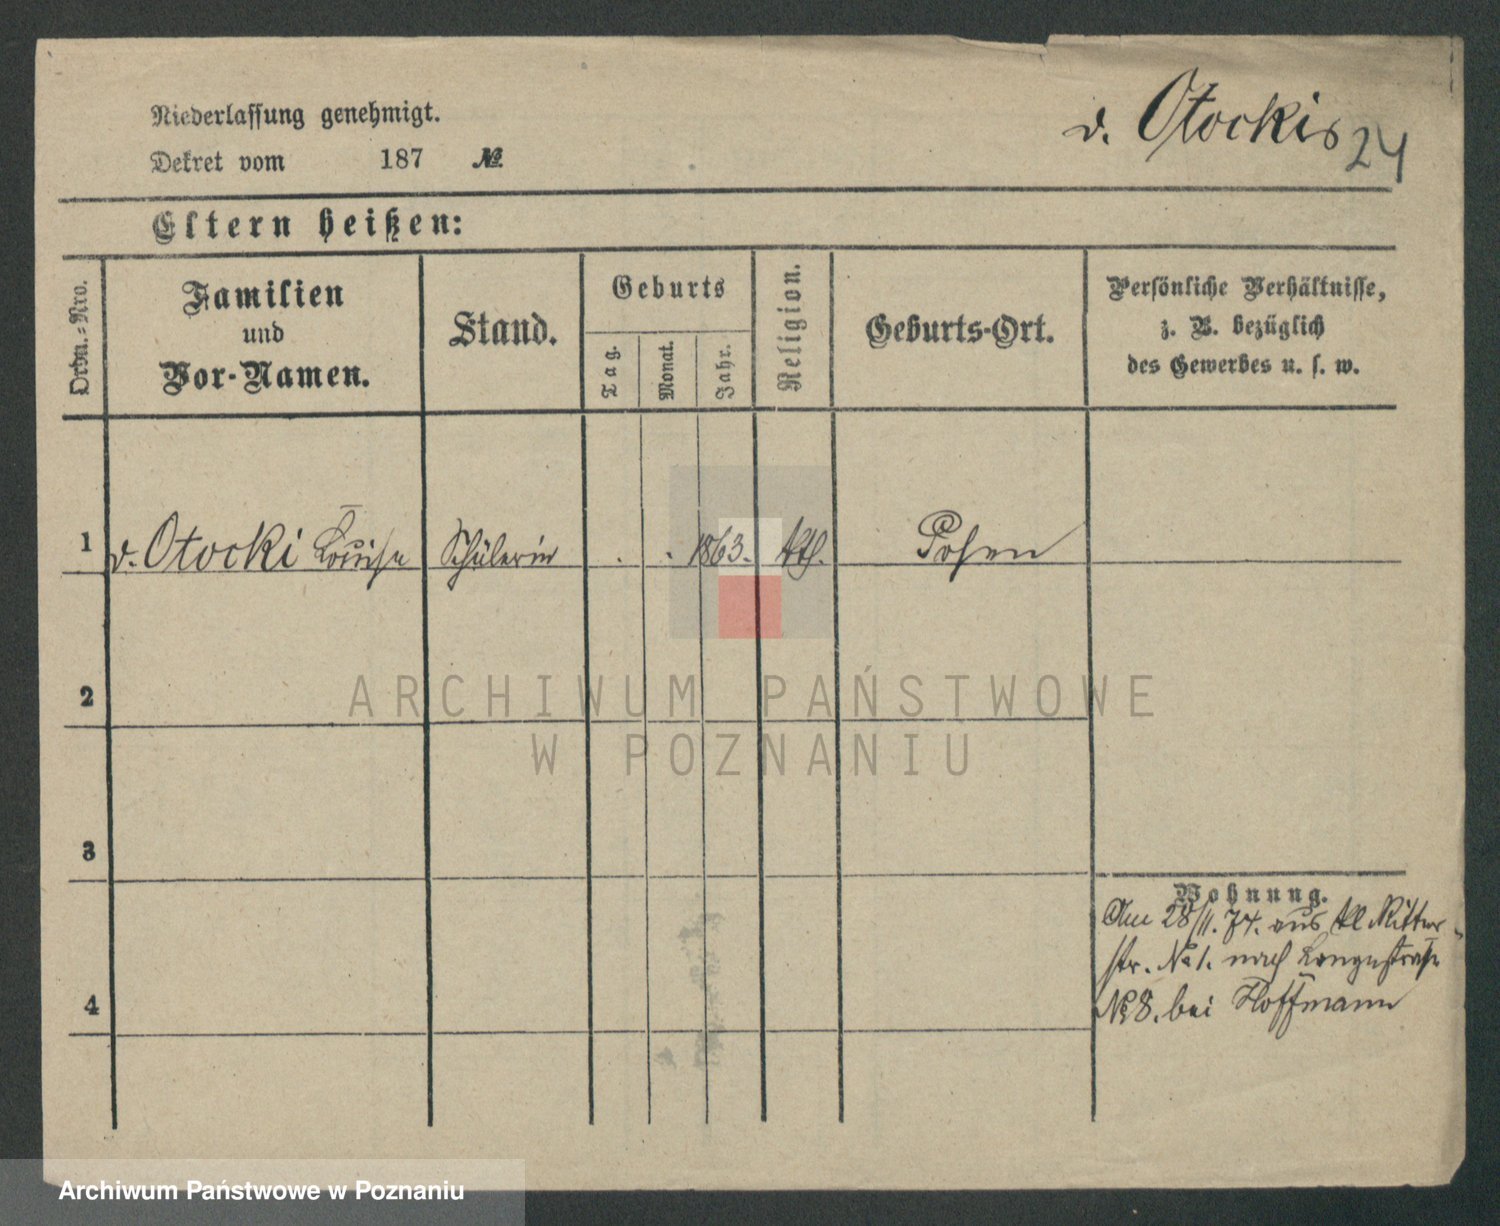 Niederlassung genehmigt.
v. Otocki
24
Dekret vom 187 №
Eltern heißen:
Ordn.-Nro.
Familien
und
Vor-Namen.
Stand.
Geburts
Tag.
Monat.
Jahr.
Religion.
Geburts-Ort.
Persönliche Verhältnisse,
z. B. bezüglich
des Gewerbes u. s. w.
1 v. Otocki Louise Schülerin . . 1863. kth. Posen
2
ARCHIWUM PAŃSTWOWE
W POZNANIU
3
Wohnung.
Am 28/11. 74. aus kl Ritter-
str. № 1. nach Langestraße
4
№ 8. bei Hoffmann
Archiwum Państwowe w Poznaniu